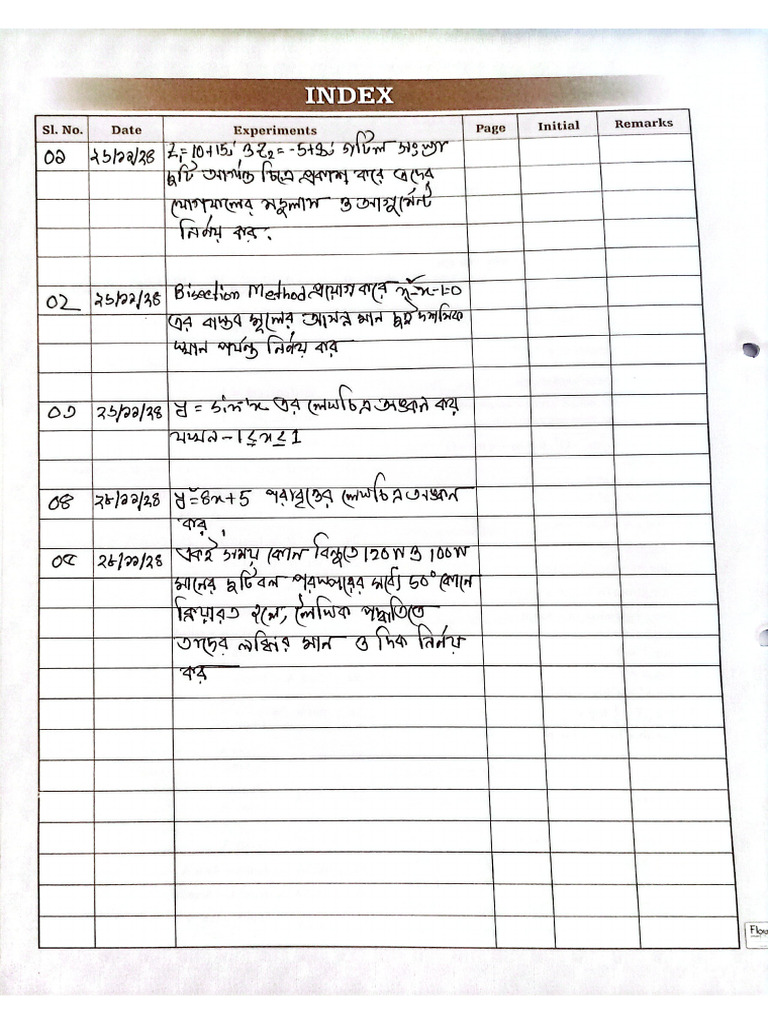 INDEX
Sl. No. Date Experiments Page Initial Remarks
০১ ২৬/১১/২৪ Z₁=10+15i ও Z₂= -5+9i জটিল সংখ্যা
দুটি আর্গন্ড চিত্রে প্রকাশ করে এদের
যোগফলের মডুলাস ও আর্গুমেন্ট
নির্ণয় কর.
০২ ২৬/১১/২৪ Bisection Method প্রয়োগ করে
এর বাস্তব মূলের আসন্ন মান দুই দশমিক
স্থান পর্যন্ত নির্ণয় কর
০৩ ২৬/১১/২৪ y = sin⁻¹x এর লেখচিত্র অঙ্কন কর
যখন -1≤x≤1
০৪ ২৮/১১/২৪ y²=8x+5 পরাবৃত্তের লেখচিত্র অঙ্কন
কর
০৫ ২৮/১১/২৪ একই সময় কোন বিন্দুতে 120N ও 100N
মানের দুটিবল পরস্পরের মধ্যে 50° কোনে
ক্রিয়ারত হলে, লৈখিক পদ্ধতিতে
তাদের লব্ধির মান ও দিক নির্ণয়
কর